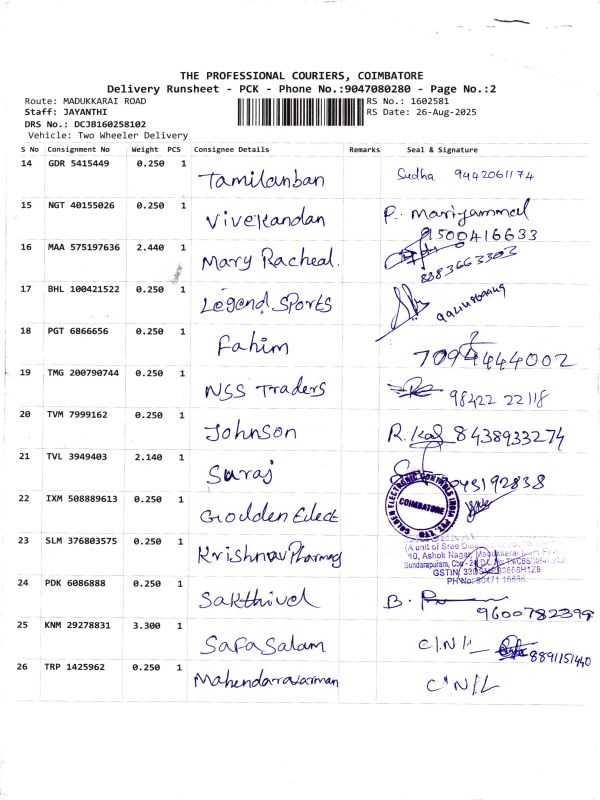 THE PROFESSIONAL COURIERS, COIMBATORE
Delivery Runsheet - PCK - Phone No.:9047080280 - Page No.:2
Route: MADUKKARAI ROAD RS No.: 1602581
Staff: JAYANTHI RS Date: 26-Aug-2025
DRS No.: DCJB160258102
Vehicle: Two Wheeler Delivery
S No Consignment No Weight PCS Consignee Details Remarks Seal & Signature
14 GDR 5415449 0.250 1 Tamilanban Sudha 9442061174
15 NGT 40155026 0.250 1 Vivekandan P. Mariyammal
91500416633
16 MAA 575197636 2.440 1 Mary Racheal. 8883663303
17 BHL 100421522 0.250 1 Legend Sports
18 PGT 6866656 0.250 1 Fahim 7094444002
19 TMG 200790744 0.250 1 NSS Traders 98422 22118
20 TVM 7999162 0.250 1 Johnson 8438933274
21 TVL 3949403 2.140 1 Suraj
22 IXM 508889613 0.250 1 Golden Elect
GOLDEN ELECTRONIC CONTROLS INDIA PVT. LTD
COIMBATORE
23 SLM 376803575 0.250 1 Krishnav Pharmacy
(A unit of Sree
10, Ashok Nagar, Madukkarai
Sundarapuram,
GSTIN:
PH No: 90471 16666.
24 PDK 6086888 0.250 1 Sakthivel B.
9600782399
25 KNM 29278831 3.300 1 Safa Salam C/N/L 8891151440
26 TRP 1425962 0.250 1 C/N/L